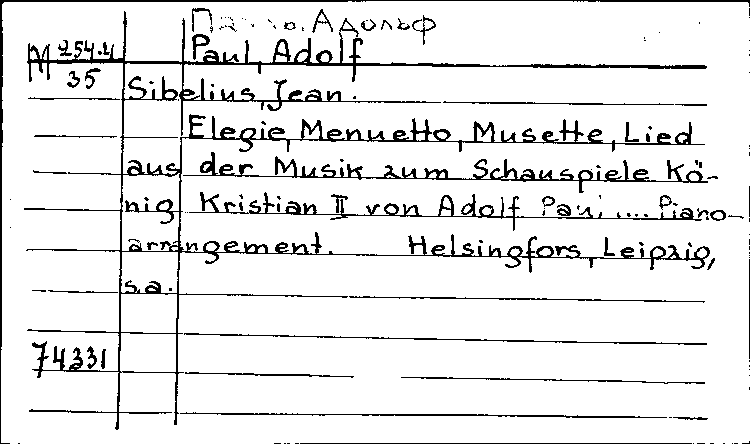 Адольф
M 254.4
35
Paul, Adolf
Sibelius, Jean.
Elegie, Menuetto, Musette, Lied
aus der Musik zum Schauspiele Kö-
nig Kristian II von Adolf Paul .... Piano-
arrangement. Helsingfors, Leipzig,
s.a.
74331